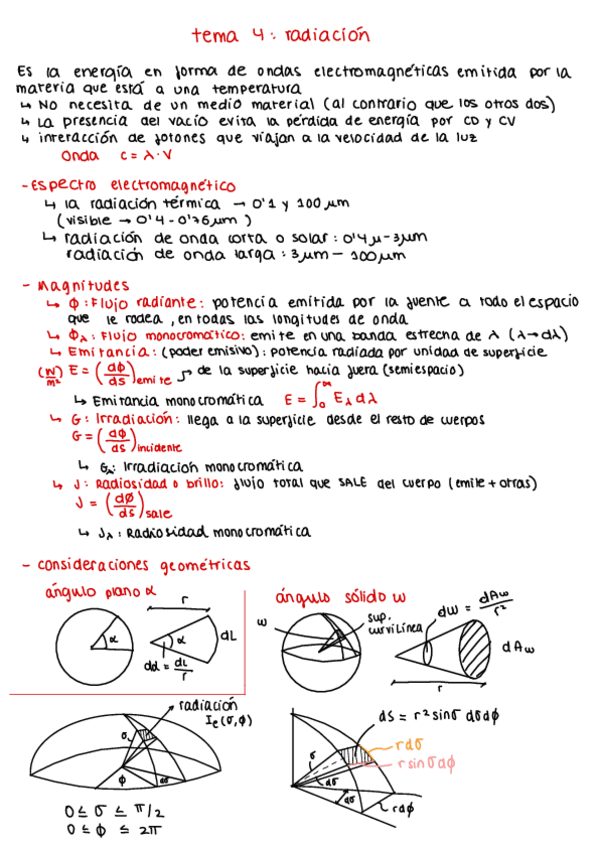 tema 4: radiación
Es la energía en forma de ondas electromagnéticas emitida por la
materia que está a una temperatura
↳ No necesita de un medio material (al contrario que los otros dos)
↳ La presencia del vacío evita la pérdida de energía por CD y CV
↳ interacción de fotones que viajan a la velocidad de la luz
Onda c = λ · ν
- Espectro electromagnético
↳ la radiación térmica → 0'1 y 100 μm
(visible → 0'4 - 0'76 μm)
↳ radiación de onda corta o solar: 0'4 μ - 3 μm
radiación de onda larga: 3 μm - 100 μm
- Magnitudes
↳ Φ: Flujo radiante: potencia emitida por la fuente a todo el espacio
que le rodea, en todas las longitudes de onda
↳ Φλ: Flujo monocromático: emite en una banda estrecha de λ (λ→dλ)
↳ Emitancia: (poder emisivo): potencia radiada por unidad de superficie
(W/m²) E = (dΦ/dS) emite → de la superficie hacia fuera (semiespacio)
↳ Emitancia monocromática E = ∫₀^∞ Eλ dλ
↳ G: Irradiación: llega a la superficie desde el resto de cuerpos
G = (dΦ/dS) incidente
↳ Gλ: Irradiación monocromática
↳ J: Radiosidad o brillo: flujo total que SALE del cuerpo (emite + otras)
J = (dØ/dS) sale
↳ Jλ: Radiosidad monocromática
- consideraciones geométricas
ángulo plano α
α
r
α
dL
dα = dL/r
ángulo sólido w
w
sup. curvilínea
dw = dAw/r²
dAw
r
radiación
Ie (σ, φ)
σ
φ
dσ
0 ≤ σ ≤ π/2
0 ≤ φ ≤ 2π
dS = r² sinσ dσ dφ
r dσ
r sinσ dφ
σ
dσ
dσ
r dφ